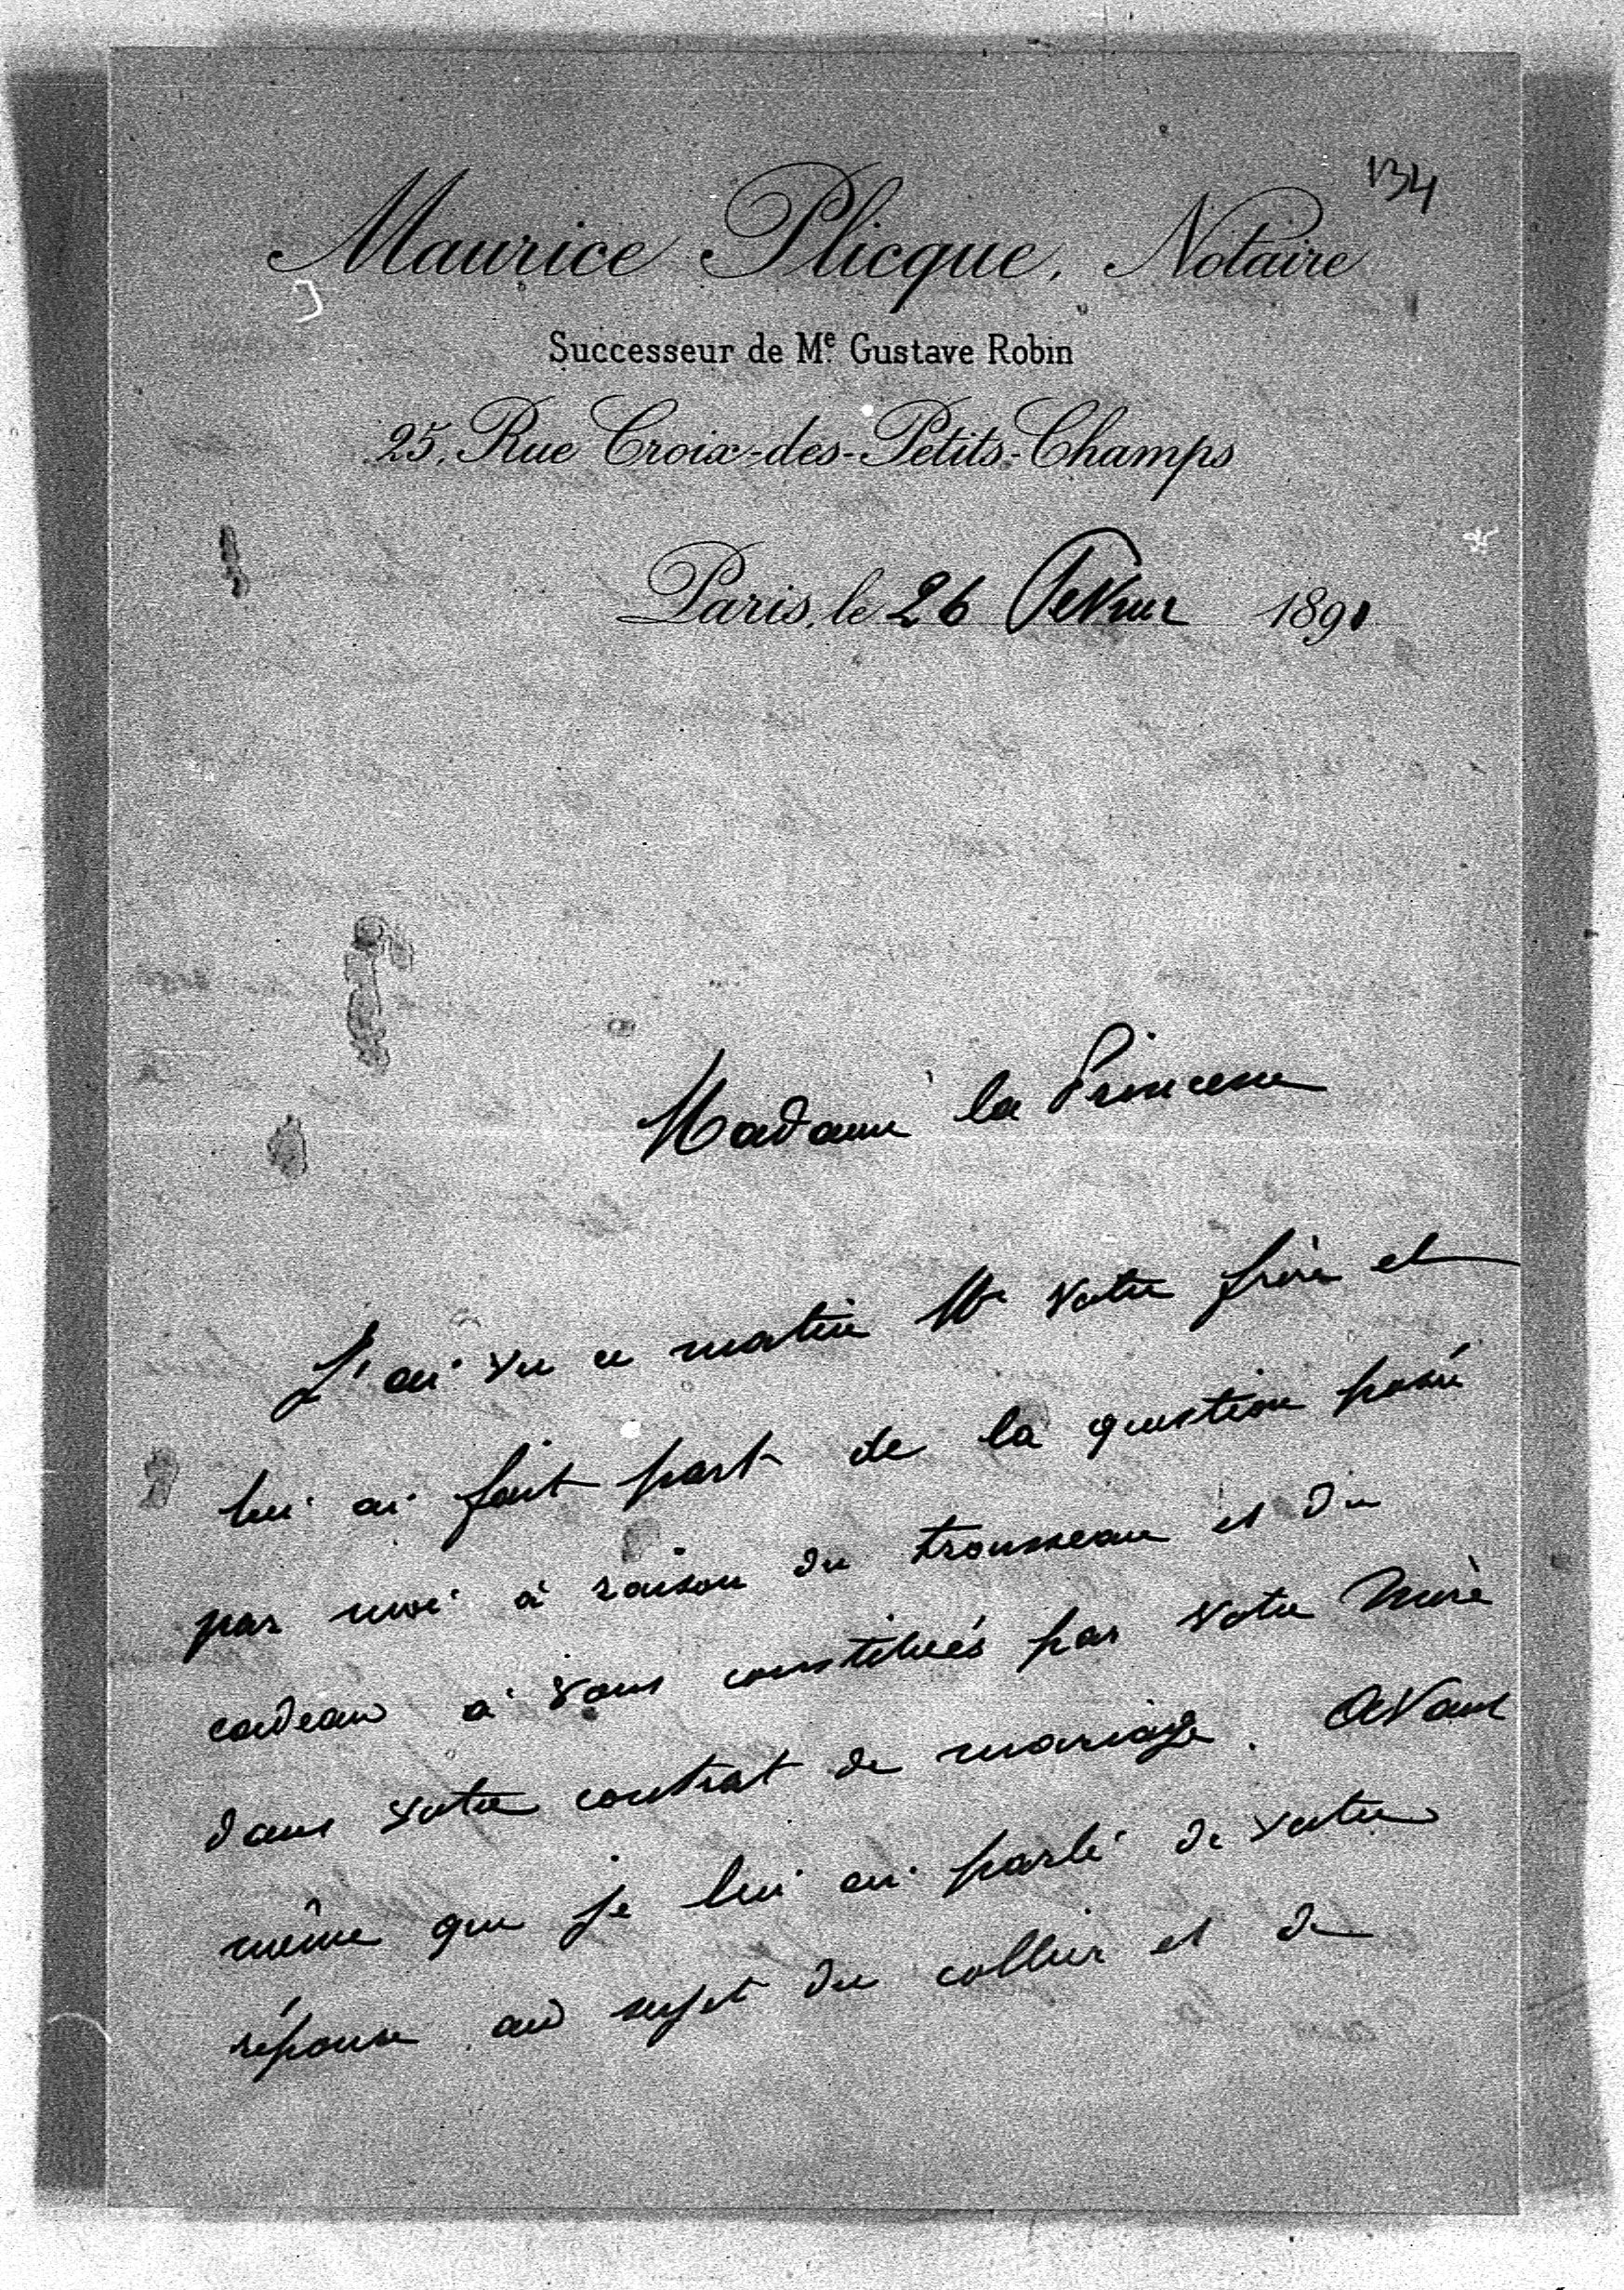 134
Maurice Plicque, Notaire
Successeur de Mᵉ Gustave Robin
25, Rue Croix-des-Petits-Champs
Paris, le 26 Février 1891
Madame la Princesse
J'ai vu ce matin Mr votre frère et
lui ai fait part de la question posée
par moi à raison du trousseau et du
cadeau à vous constitués par votre mère
dans votre contrat de mariage. Avant
même que je lui ai parlé de votre
réponse au sujet du collier et de